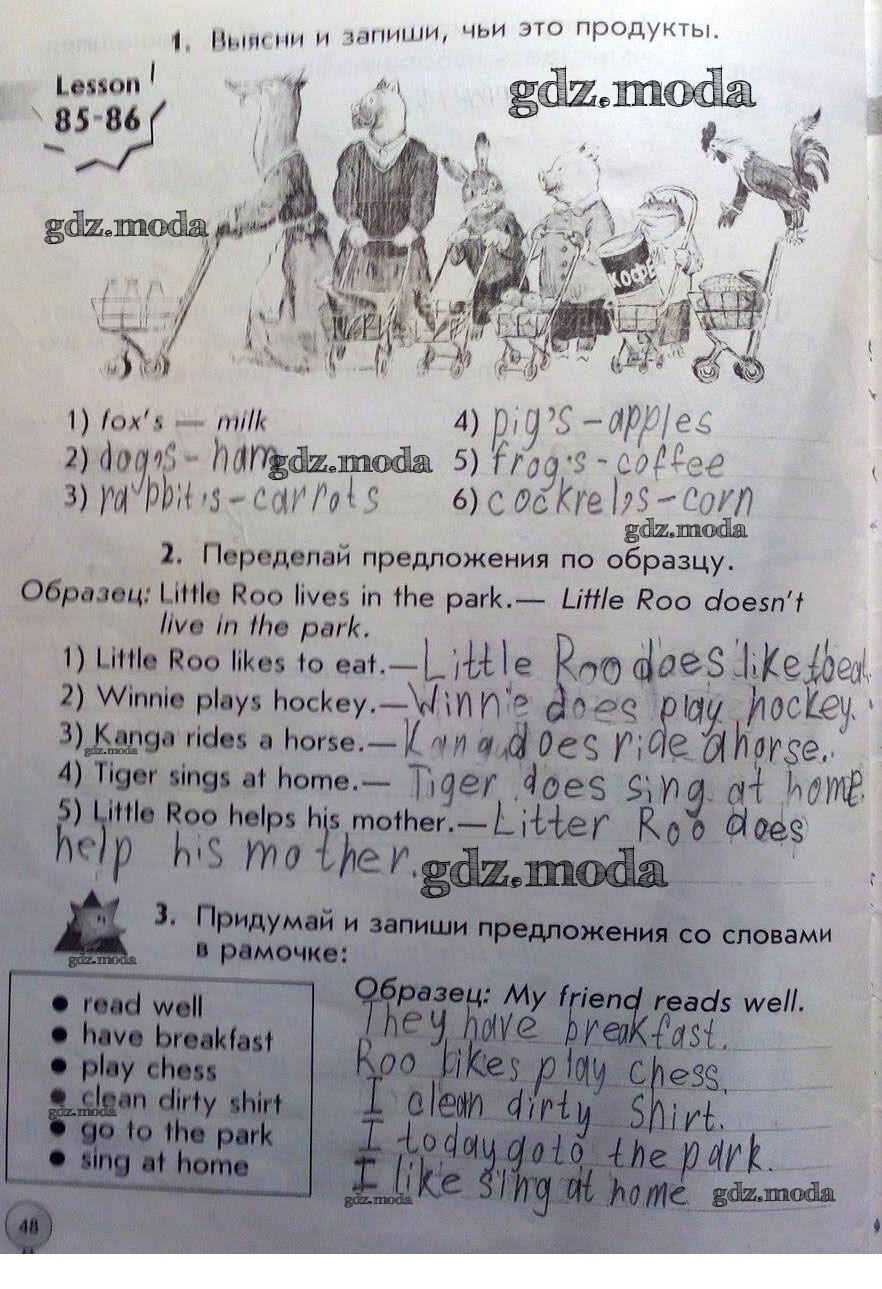 1. Выясни и запиши, чьи это продукты.
Lesson
85-86
gdz.moda
gdz.moda
КОФЕ
1) fox's — milk
4) pig's - apples
2) dog's - ham
gdz.moda
5) frog's - coffee
3) rabbit's - carrots
6) cockrel's - corn
gdz.moda
2. Переделай предложения по образцу.
Образец: Little Roo lives in the park.— Little Roo doesn't
live in the park.
1) Little Roo likes to eat.— Little Roo does like to eat.
2) Winnie plays hockey.— Winnie does play hockey.
3) Kanga rides a horse.— Kana does ride a horse.
gdz.moda
4) Tiger sings at home.— Tiger does sing at home.
5) Little Roo helps his mother.— Litter Roo does
help his mother.
gdz.moda
3. Придумай и запиши предложения со словами
в рамочке:
gdz.moda
Образец: My friend reads well.
• read well
• have breakfast
• play chess
• clean dirty shirt
gdz.moda
• go to the park
• sing at home
They have breakfast.
Roo likes play chess.
I clean dirty shirt.
I today go to the park.
I like sing at home
gdz.moda
gdz.moda
48